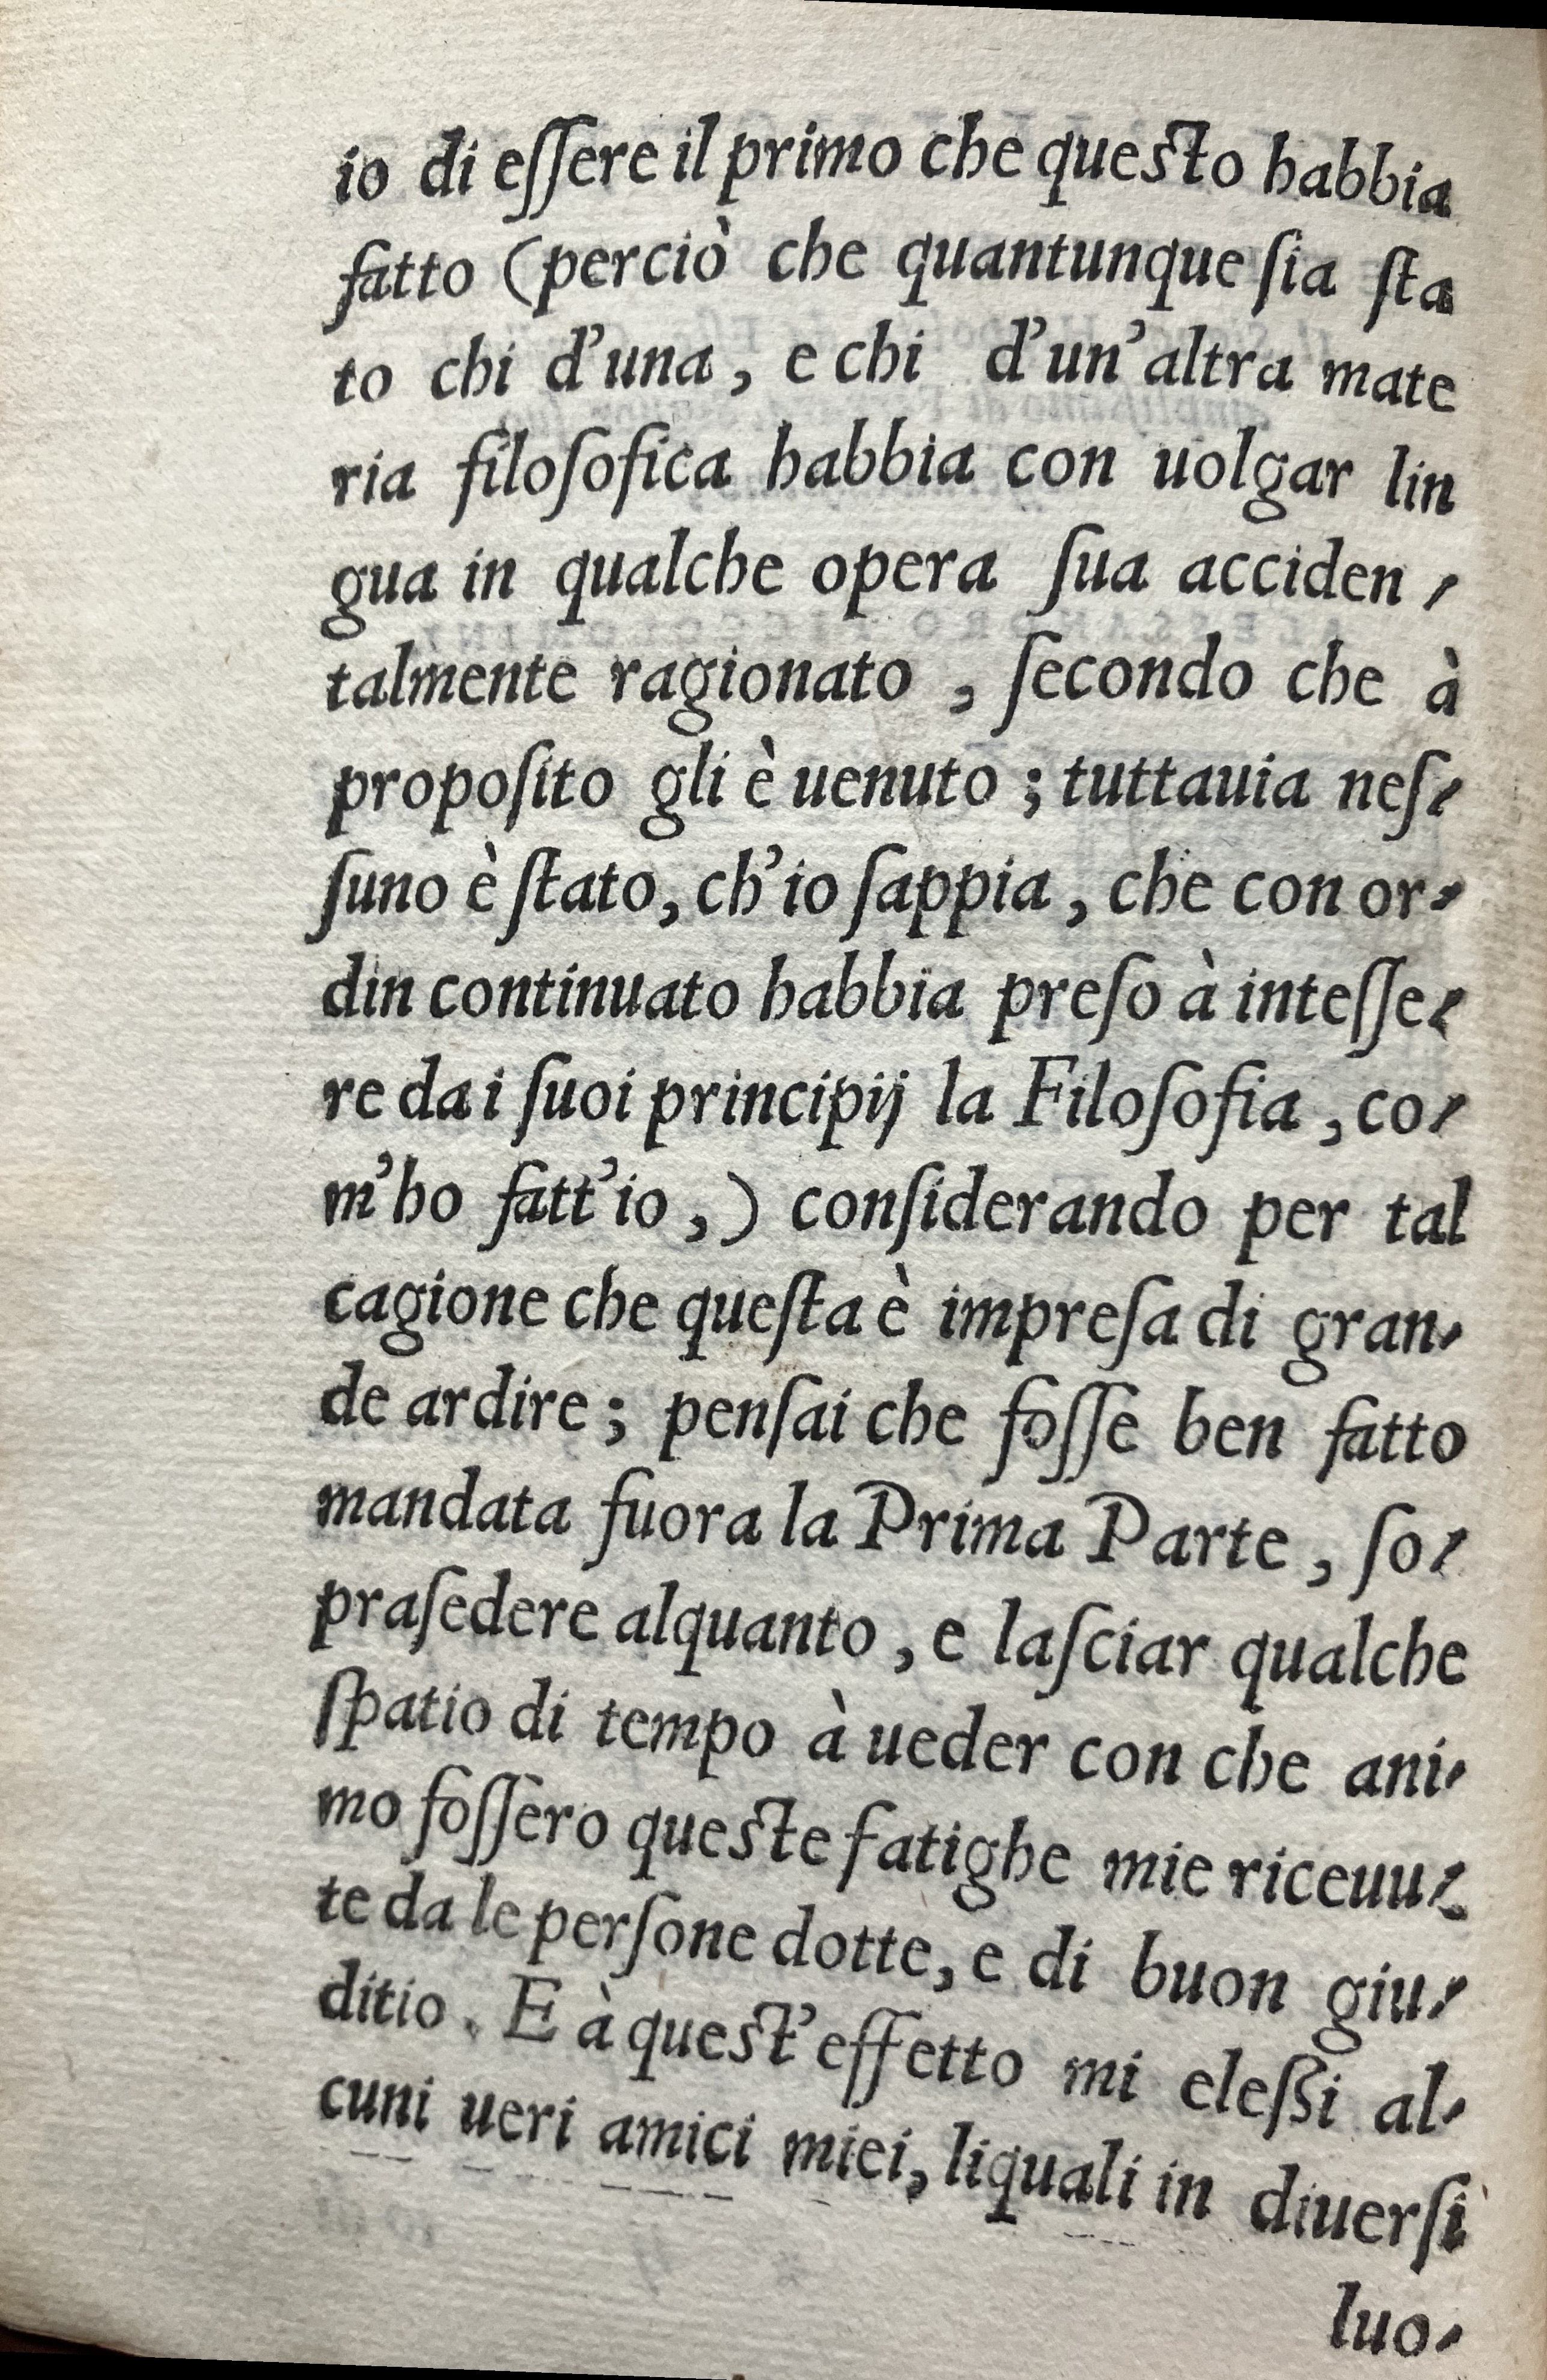 io di eſſere il primo che queſto habbia
fatto (perciò che quantunque ſia ſta
to chi d'una, e chi d'un'altra mate
ria filoſofica habbia con uolgar lin
gua in qualche opera ſua acciden-
talmente ragionato, ſecondo che à
propoſito gli è uenuto; tuttauia neſ-
ſuno è ſtato, ch'io ſappia, che con or-
din continuato habbia preſo à inteſſe-
re da i ſuoi principij la Filoſofia, co-
m'ho fatt'io,) conſiderando per tal
cagione che queſta è impreſa di gran-
de ardire; penſai che foſſe ben fatto
mandata fuora la Prima Parte, ſo-
praſedere alquanto, e laſciar qualche
ſpatio di tempo à ueder con che ani-
mo foſſero queſte fatighe mie riceuu-
te da le perſone dotte, e di buon giu-
ditio. E à queſt'effetto mi eleſsi al-
cuni ueri amici miei, liquali in diuerſi
luo-